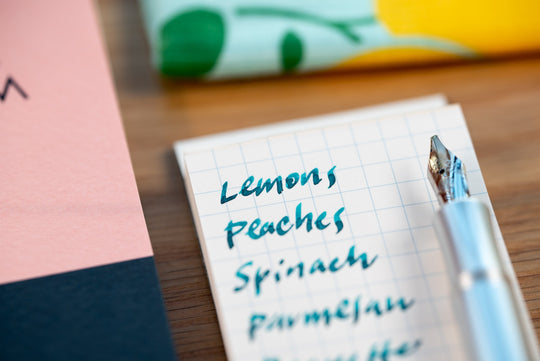 Lemons
peaches
Spinach
parmesan